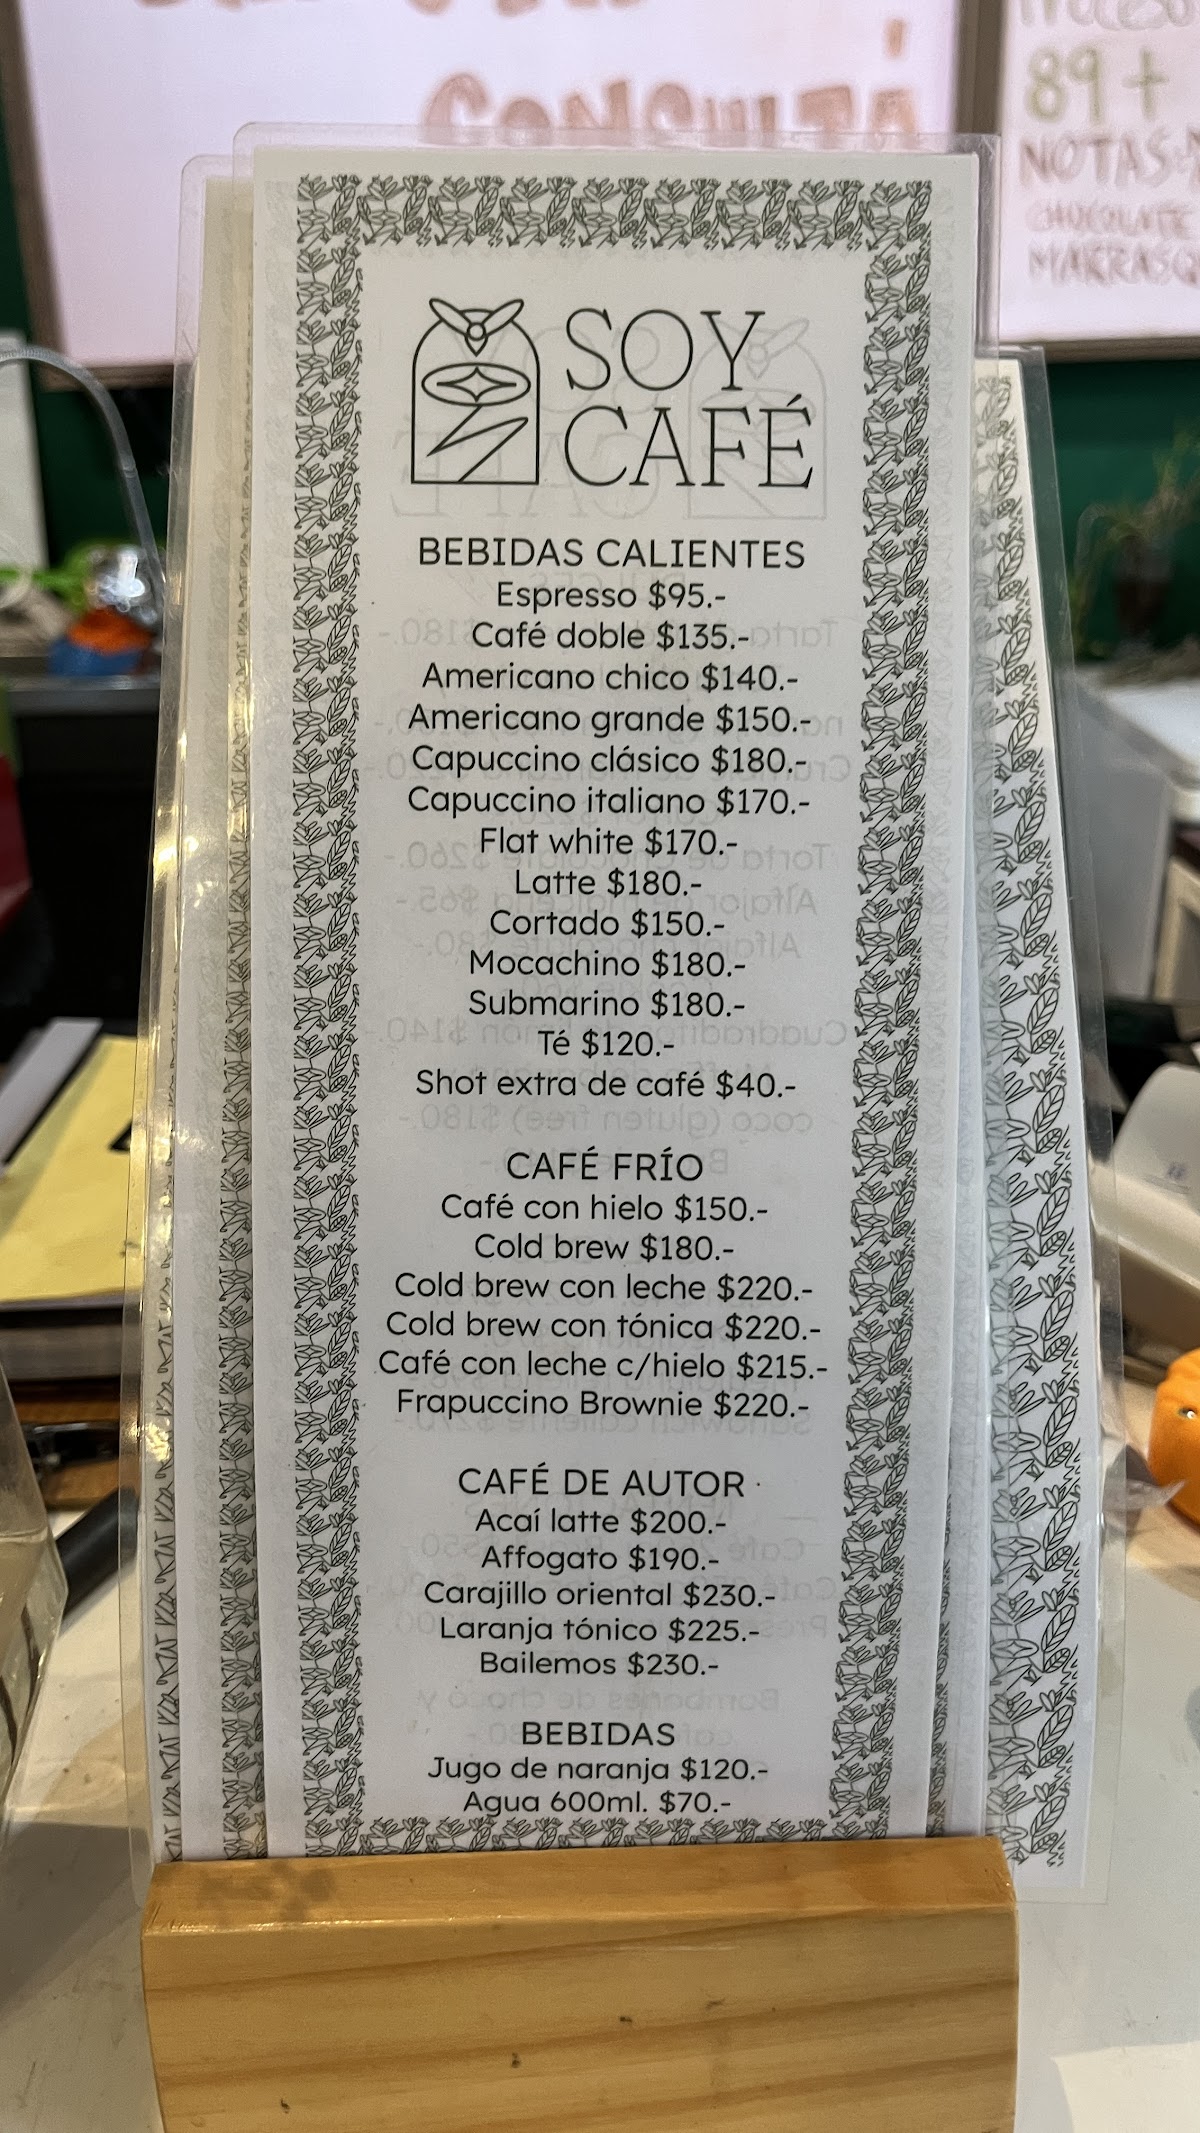 CONSULTÁ
89+
CHOCOLATE
SOY
CAFÉ
BEBIDAS CALIENTES
Espresso $95.-
Café doble $135.-
Americano chico $140.-
Americano grande $150.-
Capuccino clásico $180.-
Capuccino italiano $170.-
Flat white $170.-
Latte $180.-
Cortado $150.-
Mocachino $180.-
Submarino $180.-
Té $120.-
Shot extra de café $40.-
CAFÉ FRÍO
Café con hielo $150.-
Cold brew $180.-
Cold brew con leche $220.-
Cold brew con tónica $220.-
Café con leche c/hielo $215.-
Frapuccino Brownie $220.-
CAFÉ DE AUTOR
Acaí latte $200.-
Affogato $190.-
Carajillo oriental $230.-
Laranja tónico $225.-
Bailemos $230.-
BEBIDAS
Jugo de naranja $120.-
Agua 600ml. $70.-